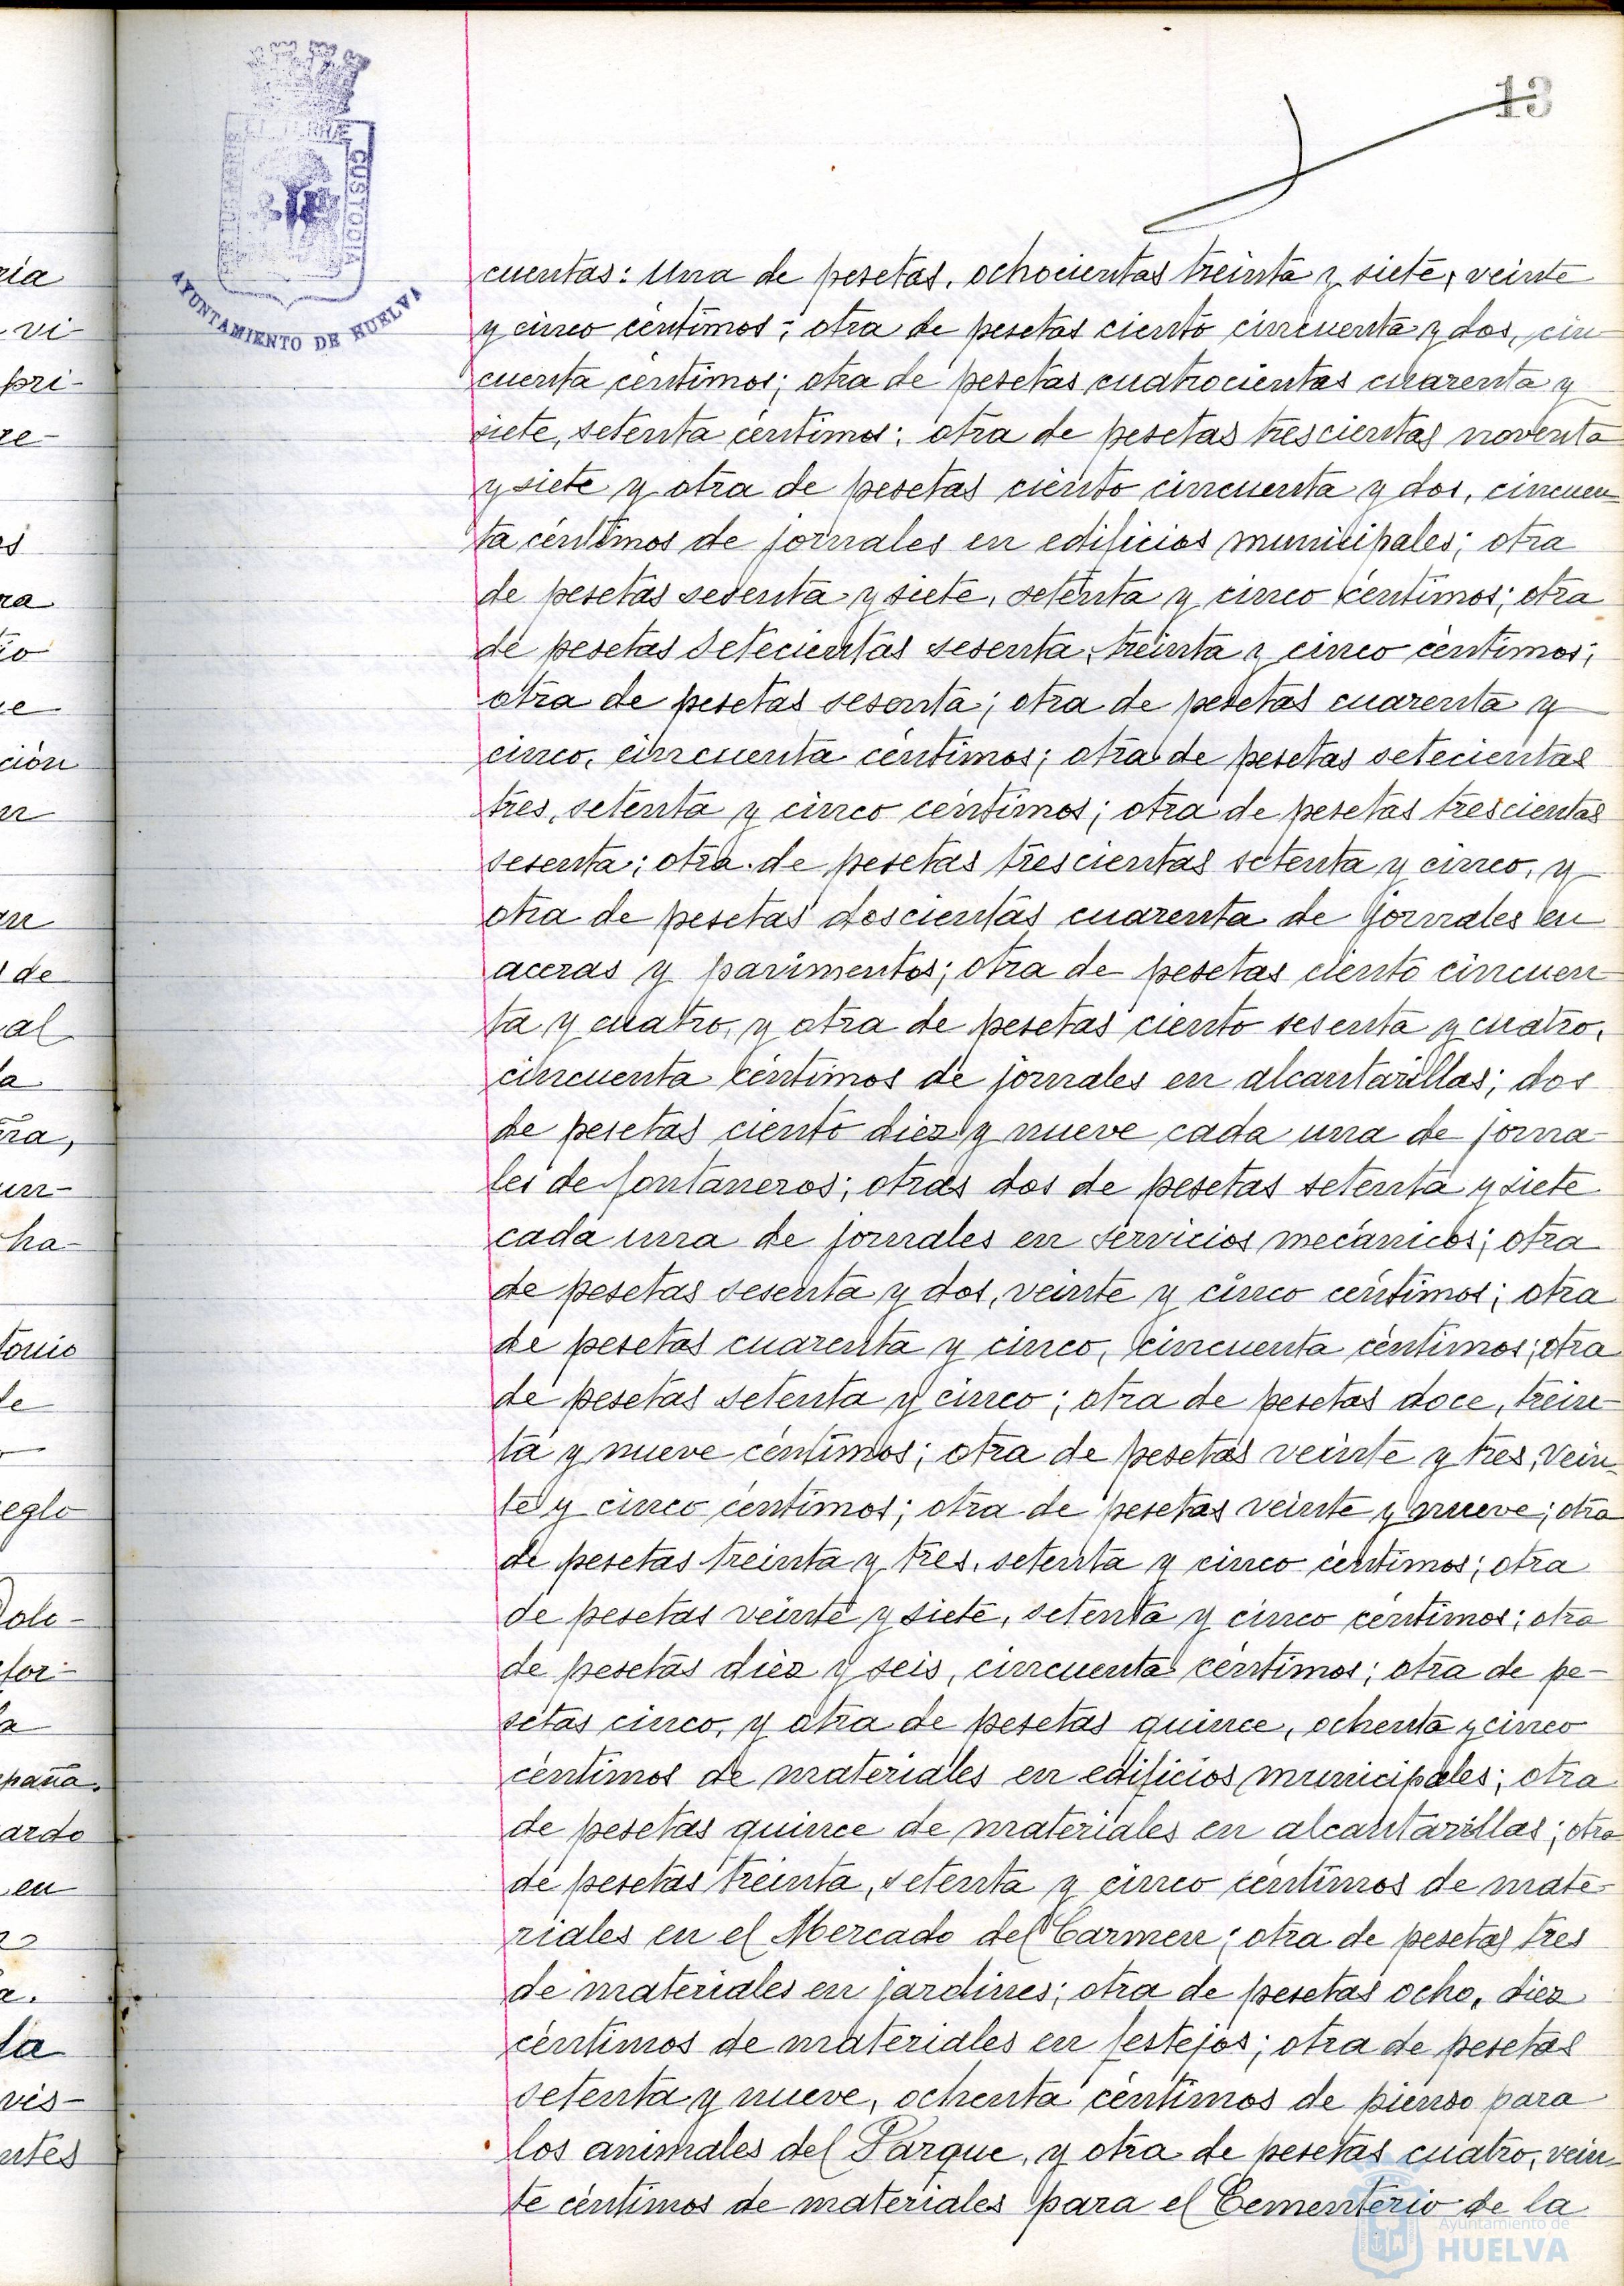 13
PORTUS MARIS ET TERRAE CUSTODIA
AYUNTAMIENTO DE HUELVA
cuentas: Una de pesetas, ochocientas treinta y siete, veinte
y cinco céntimos; otra de pesetas ciento cincuenta y dos, cin
cuenta céntimos; otra de pesetas cuatrocientas cuarenta y
siete, setenta céntimos; otra de pesetas trescientas noventa
y siete y otra de pesetas ciento cincuenta y dos, cincuen
ta céntimos de jornales en edificios municipales; otra
de pesetas sesenta y siete, setenta y cinco céntimos; otra
de pesetas setecientas sesenta, treinta y cinco céntimos;
otra de pesetas sesenta; otra de pesetas cuarenta y
cinco, cincuenta céntimos; otra de pesetas setecientas
tres, setenta y cinco céntimos; otra de pesetas trescientas
sesenta; otra de pesetas trescientas setenta y cinco, y
otra de pesetas doscientas cuarenta de jornales en
aceras y pavimentos; otra de pesetas ciento cincuen
ta y cuatro, y otra de pesetas ciento sesenta y cuatro,
cincuenta céntimos de jornales en alcantarillas; dos
de pesetas ciento diez y nueve cada una de jorna-
les de fontaneros; otras dos de pesetas setenta y siete
cada una de jornales en servicios mecánicos; otra
de pesetas sesenta y dos, veinte y cinco céntimos; otra
de pesetas cuarenta y cinco, cincuenta céntimos; otra
de pesetas setenta y cinco; otra de pesetas doce, trein-
ta y nueve céntimos; otra de pesetas veinte y tres, vein-
te y cinco céntimos; otra de pesetas veinte y nueve; otra
de pesetas treinta y tres, setenta y cinco céntimos; otra
de pesetas veinte y siete, setenta y cinco céntimos; otra
de pesetas diez y seis, cincuenta céntimos; otra de pe-
setas cinco, y otra de pesetas quince, ochenta y cinco
céntimos de materiales en edificios municipales; otra
de pesetas quince de materiales en alcantarillas; otra
de pesetas treinta, setenta y cinco céntimos de mate-
riales en el Mercado del Carmen; otra de pesetas tres
de materiales en jardines; otra de pesetas ocho, diez
céntimos de materiales en festejos; otra de pesetas
setenta y nueve, ochenta céntimos de pienso para
los animales del Parque, y otra de pesetas cuatro, vein-
te céntimos de materiales para el Cementerio de la
Ayuntamiento de
HUELVA